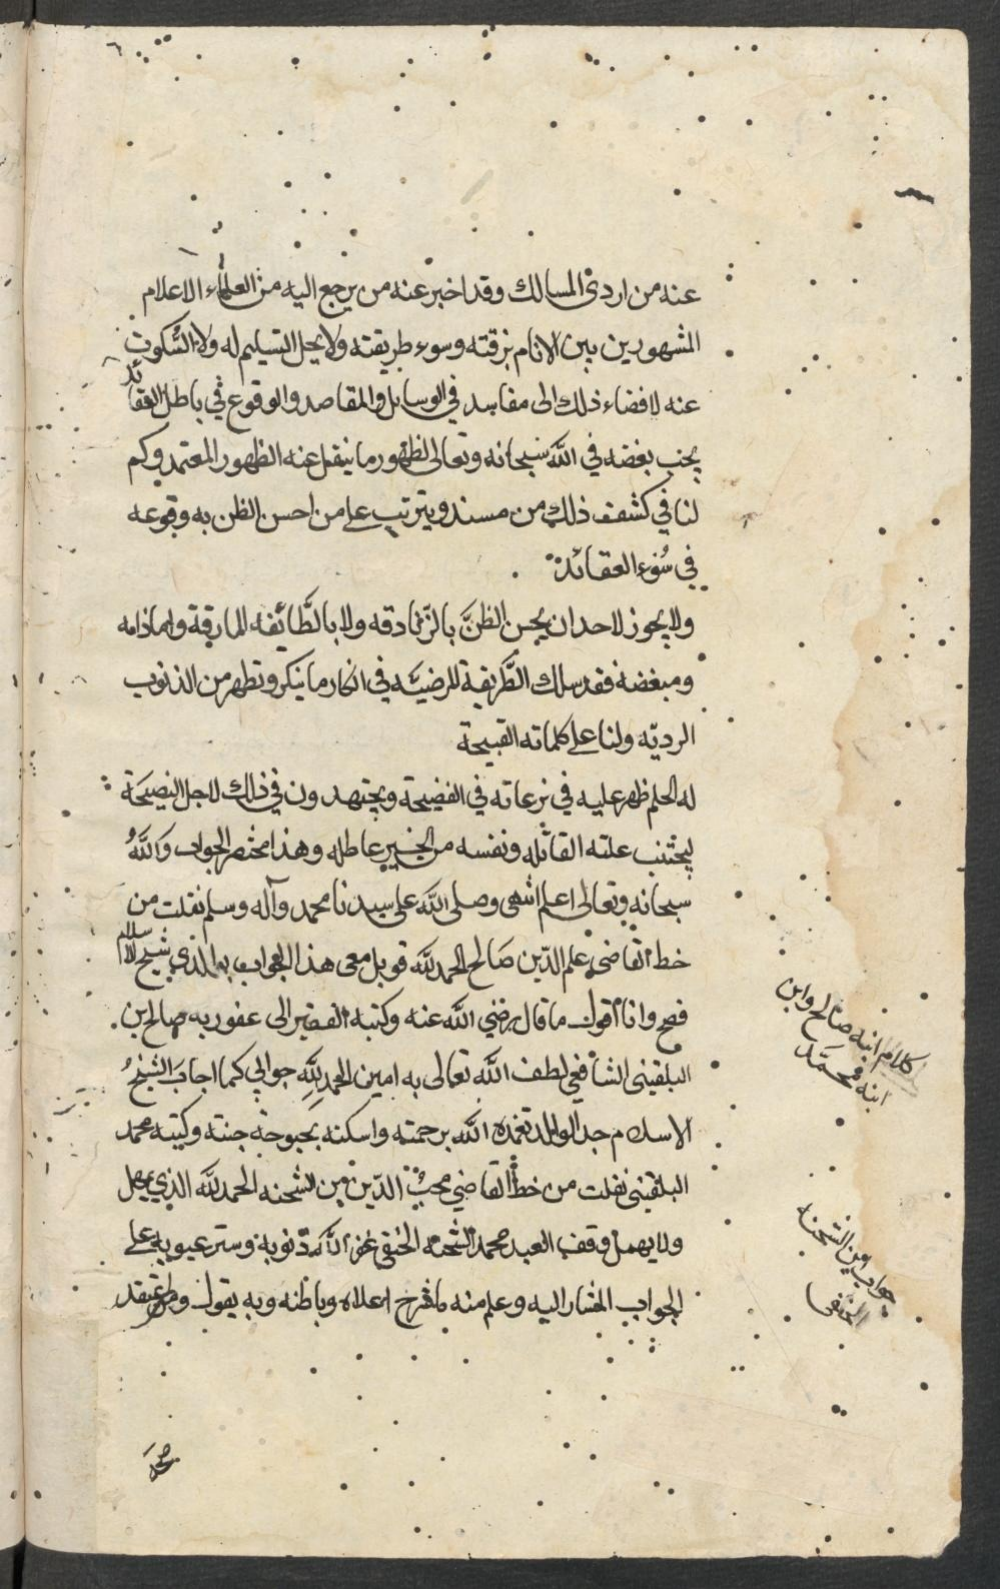 ٦
عنه من اردى المسالك وقد اخبر عنه من يرجع اليه من العلماء الاعلام
المشهورين بين الانام بزندقته وسوء طريقته ولا يحل التسليم له ولا السكوت
عنه لافضاء ذلك الى مفاسد في الوسايل والمقاصد والوقوع في باطل العقائد
يجب بغضه في الله سبحانه وتعالى لظهور ما ينقل عنه الظهور المعتمد وكم
لنا في كشف ذلك من مسند ويترتب على من احسن الظن به وقوعه
في سوء العقائد
ولا يجوز لاحد ان يحسن الظن بالزنادقه ولا بالطائفه المارقة واما ذامه
ومبغضه فقد سلك الطريقة المرضيه في انكار ما ينكر وتطهر من الذنوب
الرديه ولنا على كلماته القبيحة
له الحلم ظهر عليه في نزعاته في الفضيحة ويجتهدون في ذلك لاجل النصيحة
ليجتنب علته القاتله ونفسه من الخير عاطله وهذا مختصر الجواب والله
سبحانه وتعالى اعلم انتهى وصلى الله على سيدنا محمد وآله وسلم نقلت من
خط القاضي علم الدين صالح الحمد لله قوبل معى هذا الجواب بـ الذي شيخ الاسلام
فصح وانا اقول ما قال رضي الله عنه وكتبه الفقير الى عفو ربه صالح بن
البلقيني الشافعي لطف الله تعالى به امين الحمد لله جوابي كما اجاب الشيخ
الاسلام جد الوالد تغمده الله برحمته واسكنه بحبوحة جنته وكتبه محمد
البلقيني نقلت من خط القاضي محب الدين بن الشحنه الحمد لله الذي يمهل
ولا يهمل وقف العبد محمد الشحنه الحنفي غفر الله ذنوبه وستر عيوبه على
الجواب المشار اليه وعلم منه ما شرح اعلاه وباطنه وبه يقول ويعتقد
كلام ابنه صالح وابن
ابنه محمد
جواب ابن الشحنه
الحنفي